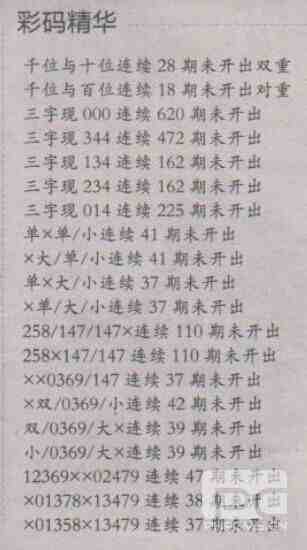 彩码精华
千位与十位连续 28 期未开出双重
千位与百位连续 18 期未开出对重
三字现 000 连续 620 期未开出
三字现 344 连续 472 期未开出
三字现 134 连续 162 期未开出
三字现 234 连续 162 期未开出
三字现 014 连续 225 期未开出
单×单/小连续 41 期未开出
×大/单/小连续 41 期未开出
单×大/小连续 37 期未开出
×单/大/小连续 37 期未开出
258/147/147×连续 110 期未开出
258×147/147 连续 110 期未开出
××0369/147 连续 37 期未开出
×双/0369/小连续 42 期未开出
双/0369/大×连续 39 期未开出
小/0369/大×连续 39 期未开出
12369××02479 连续 47 期未开出
×01378×13479 连续 38 期未开出
×01358×13479 连续 37 期未开出